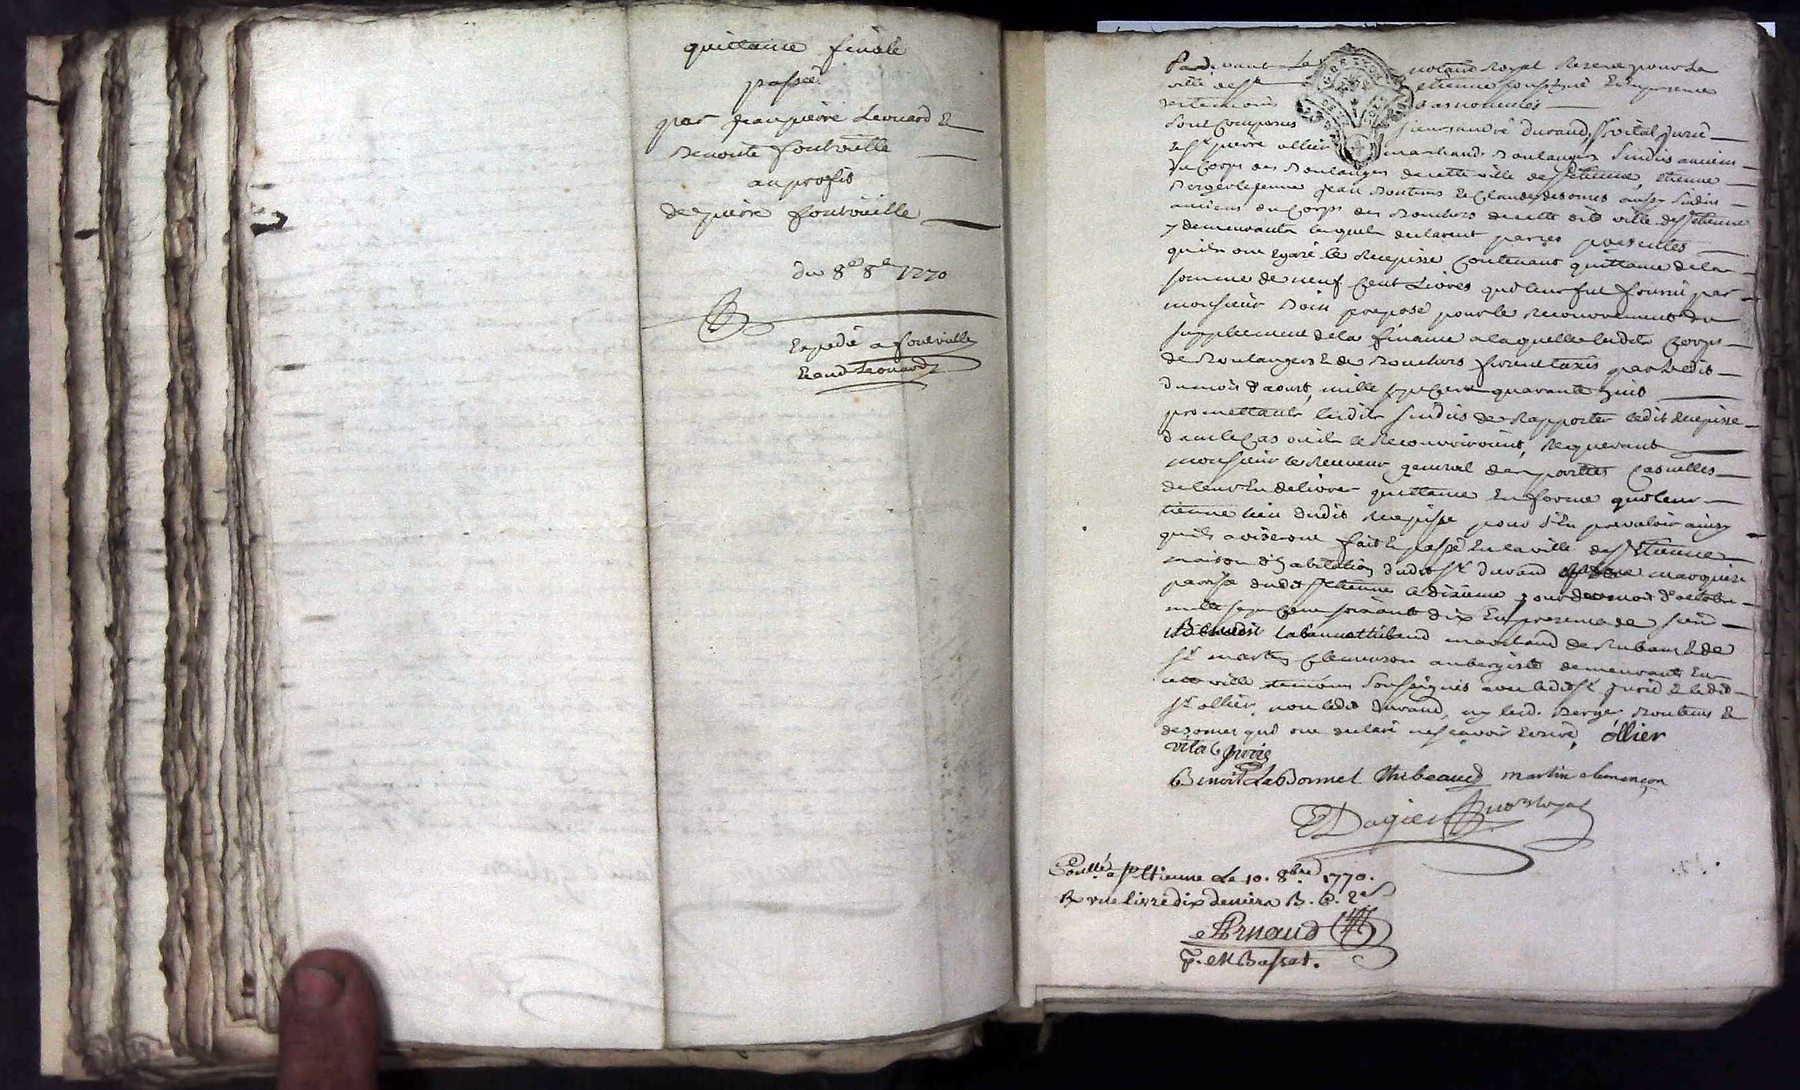 quittance finale
passée
par Jean pierre Leonard &
Benoite fontvieille
au profit
de pierre fontvieille
du 8e 8bre 1770
Expedié a fontvieille
Leonard
Pard. vant Le notaire Royal Reservé pour la
ville de St etienne soussigné En presence
des temoins bas nommés
sont comparus sieurs andré durand, vital jurie
& Sr pierre ollier marchands Boulangers sindics anciens
du Corps des Boulangers de cette ville de St etienne, etienne
Berger le jeune Jean Boutens & Claude desomes aussy sindics
anciens du Corps des Bouchers de cette dite ville de St etienne
y demeurants lesquels declarent par ces presentes
quils ont Egaré le Recepissé Contenant quittance de la
somme de neuf Cent Livres qui leur fut fourni par
monsieur Boin preposé pour le Recouvrement du
supplement de la finance a laquelle lesdits Corps
de Boulangers & de Bouchers furent taxés par Ledit
du mois d'aoust mille sept Cent quarante cinq
promettants lesdits sindics de Rapporter ledit Recepissé
dans le Cas ou ils le Recouvriroient, Requerant
monsieur le Receveur general des parties Casuelles
de leur En delivrer quittance En forme qui leur
tienne lieu dudit Recepissé pour s'En prevaloir ainsy
quils aviseront fait & passé En la ville de St Etienne
maison d'habitation dudit Sr durand marquise
paroisse dudit St etienne le dixieme jour du mois d'octobre
mille sept Cent soixante dix En presence de sieur
Benoit labonnet thibaud marchand de Rubans & de
Sr martin Clemenson aubergiste demeurants En
cette ville temoins soussignés avec ledit Sr jurie & ledit
Sr ollier, non ledit durand, ny lesd. Berger, Boutens &
desomes qui ont declaré ne sçavoir Ecrire, ollier
vital jurie
Benoit LaBonnet thibeaud martin clemençon
Dagier nore Royal
Conllé a St Etienne Le 10. 8bre 1770.
R une livre dix deniers
Arnaud
p. M Bassat.